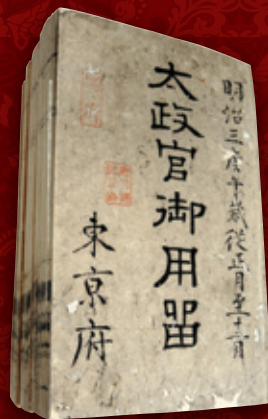 明治三庚午歳従正月至十二月
太政官御用留
東京府